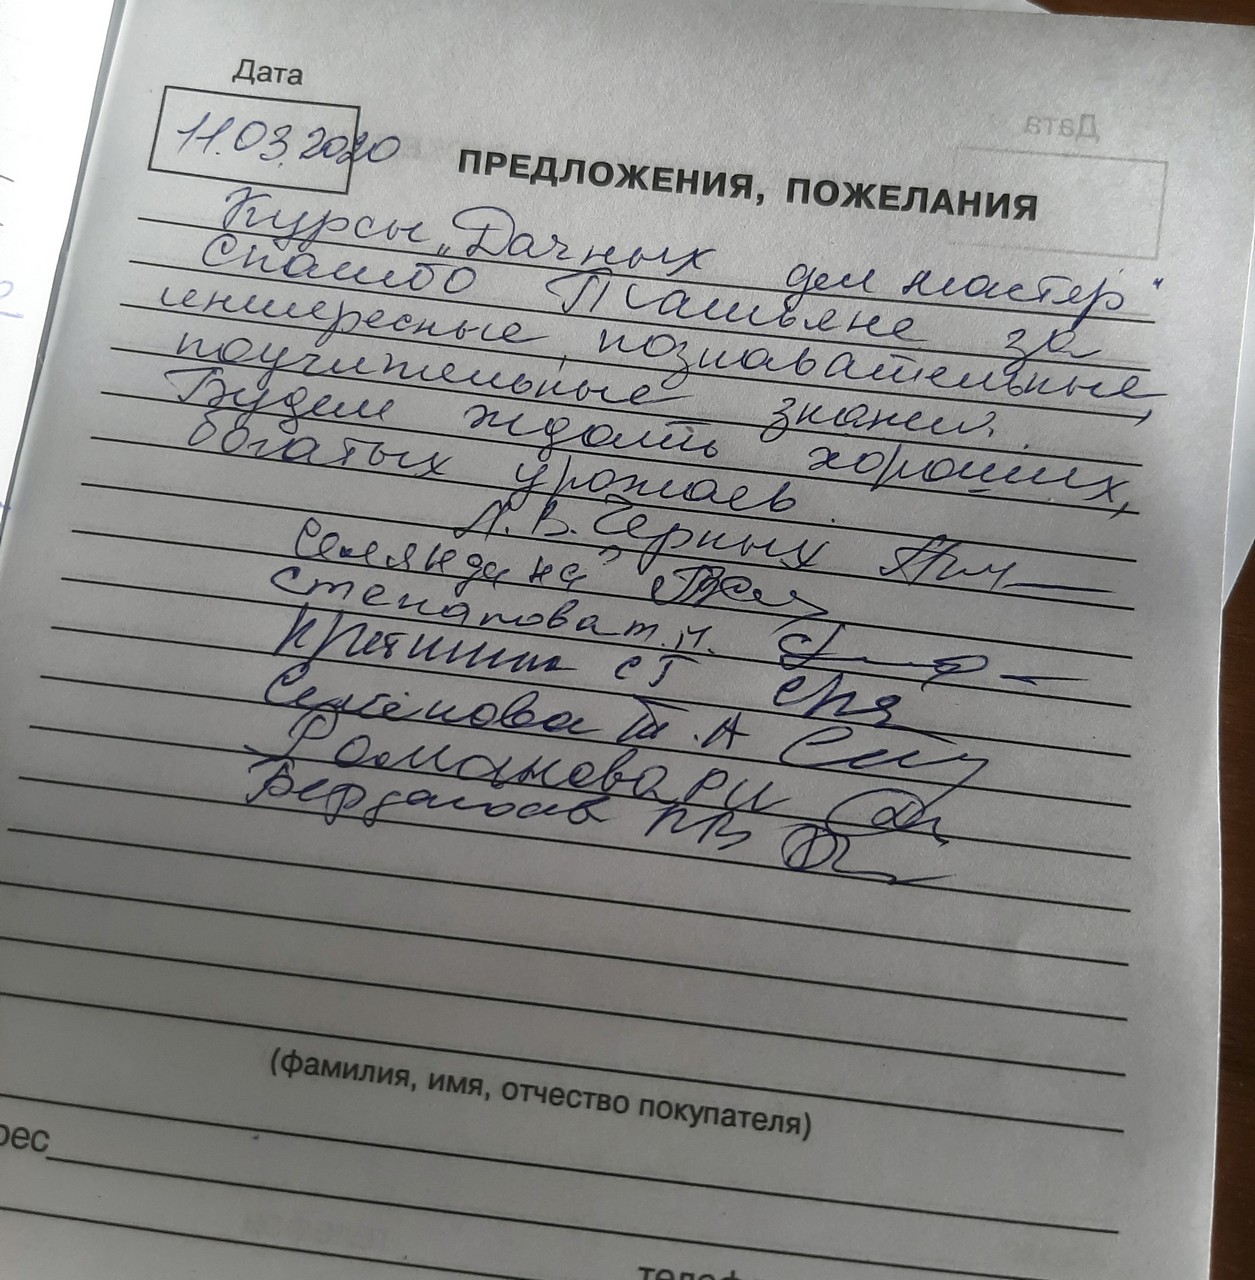 Дата
11.03.2020
ПРЕДЛОЖЕНИЯ, ПОЖЕЛАНИЯ
Курсы „Дачных дел мастер"
Спасибо Татьяне за
интересные, познавательные,
поучительные знания.
Будем ждать хороших,
богатых урожаев.
А.В. Черных
Селяндина
Степанова т.И.
СГ
Семёнова Т.А
Романова РИ
ПВ
(фамилия, имя, отчество покупателя)
рес
телеф